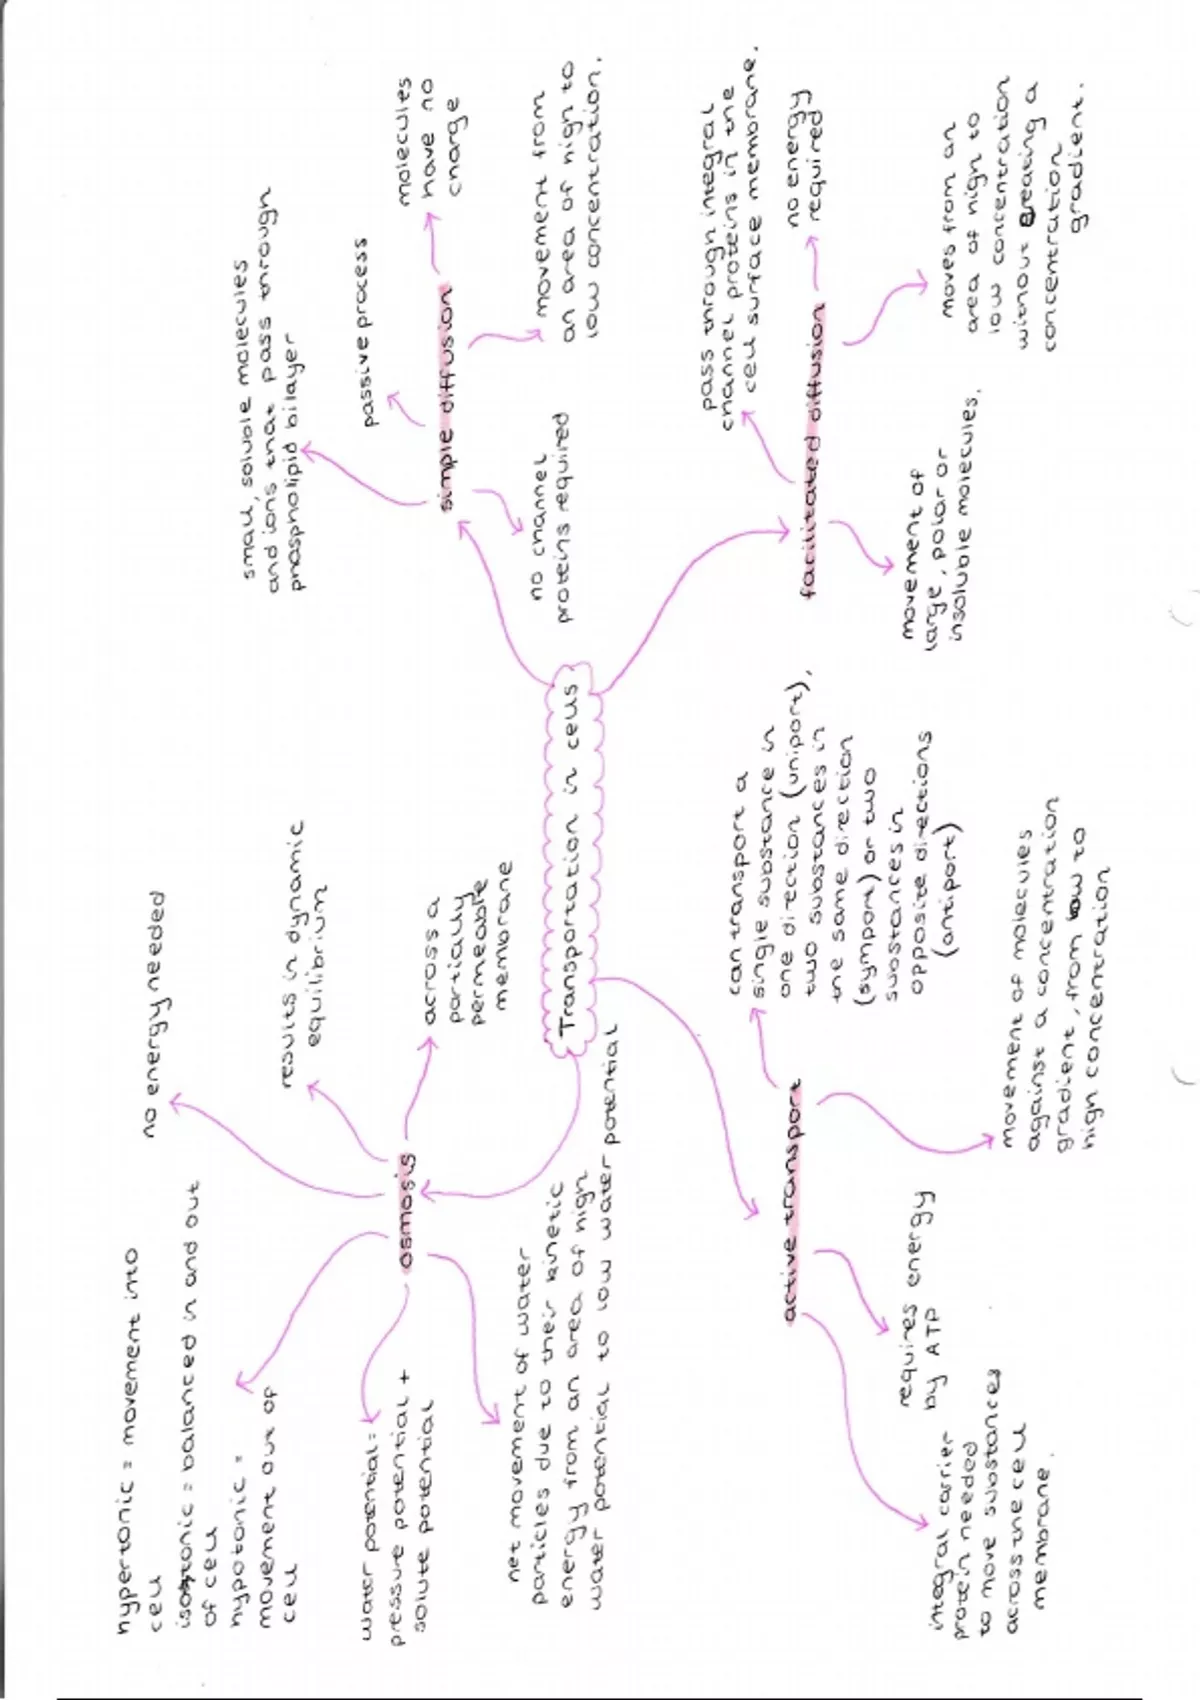 Transportation in cells
osmosis
hypertonic = movement into
cell
isotonic = balanced in and out
of cell
hypotonic =
movement out of
cell
no energy needed
results in dynamic
equilibrium
across a
partially
permeable
membrane
water potential =
pressure potential +
solute potential
net movement of water
particles due to their kinetic
energy from an area of high
water potential to low water potential
simple diffusion
small, soluble molecules
and ions that pass through
phospholipid bilayer
passive process
molecules
have no
charge
movement from
an area of high to
low concentration.
no channel
proteins required
active transport
can transport a
single substance in
one direction (uniport),
two substances in
the same direction
(symport) or two
substances in
opposite directions
(antiport)
movement of molecules
against a concentration
gradient, from low to
high concentration
requires energy
by ATP
integral carrier
protein needed
to move substances
across the cell
membrane.
facilitated diffusion
pass through integral
channel proteins in the
cell surface membrane.
no energy
required
moves from an
area of high to
low concentration
without creating a
concentration
gradient.
movement of
large, polar or
insoluble molecules.